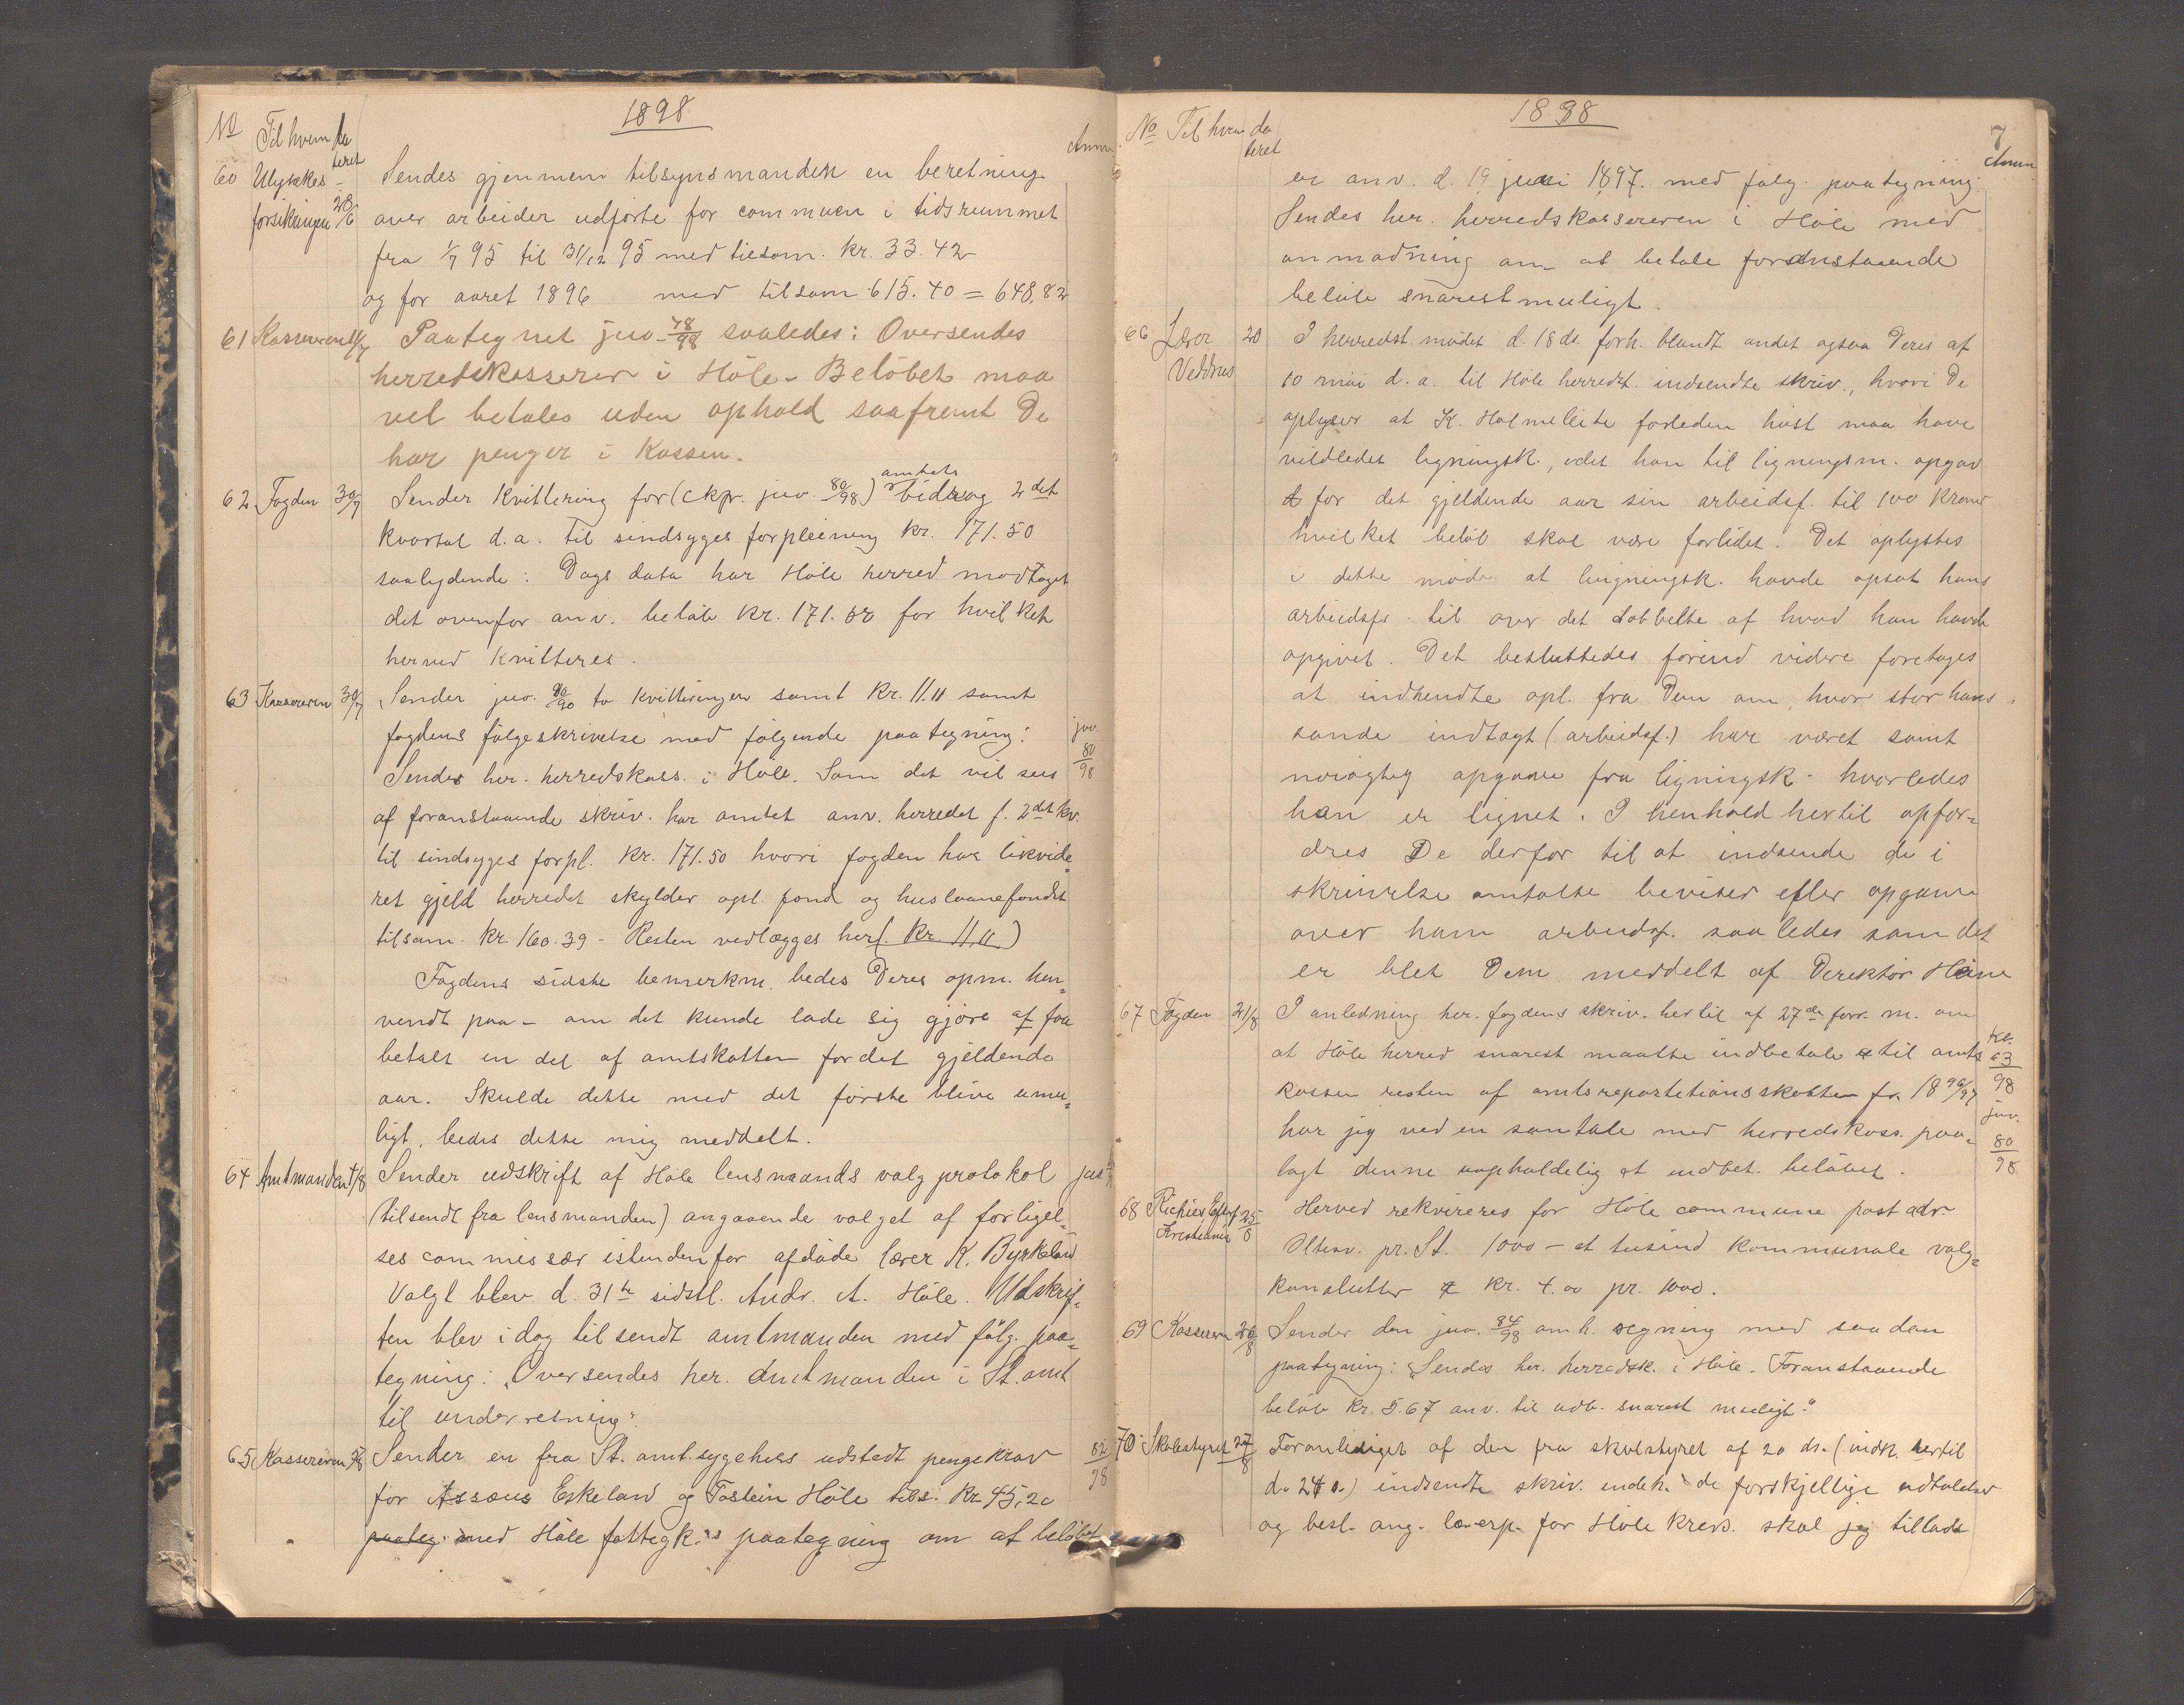 1898
No Til hvem da
teret
Anm
60 Ulykkes - Sendes gjennem tilsynsmanden en beretning
forsikringen 28/6 over arbeider udførte for commuen i tidsrummet
fra 1/7 95 til 31/12 95 med tilsam. kr. 33.42
og for aaret 1896 med tilsam 615.40 = 648,82
61 Kassereren /7 Paategnet jnv. 78/98 saaledes: Oversendes
herredskasserer i Höle. Belöbet maa
vel betales uden ophold saafremt De
har penger i Kassen.
62 Fogden 30/7 Sender Kvittering for (ckpr. jnv. 80/98) amtets bidrag 2det
kvartal d.a. til sindsyges forpleining kr. 171.50
saalydende: Dags dato har Höle herred modtaget
det ovenfor anv. belöb kr. 171.50 for hvilket
herved Kvitteres.
63 Kassereren 30/7 Sender jnv. 80/90 to kvitteringer samt kr. 11.11 samt
fogdens fölgeskrivelse med fölgende paategning:
jnv.
80
98
Sendes her. herredskass. i Höle. Som det vil sees
af foranstaaende skriv. har amtet anv. herredet f. 2det kv.
til sindsyges forpl. kr. 171.50 hvori fogden har likvide-
ret gjeld herredet skylder opl. fond og huslaanefondet
tilsam. kr. 160.39 - Resten vedlægges her (. Kr. 11.11)
Fogdens sidste bemerkn. bedes Deres opm. hen-
vendt paa - om det kunde lade sig gjöre at faa
betalt en del af amtskatten for det gjeldende
aar. Skulde dette med det förste blive umu-
ligt, bedes dette mig meddelt.
64 Amtmanden 1/8 Sender udskrift af Höle lensmands valgprotokol
(tilsendt fra lensmanden) angaaende valget af forligel-
ses commissær istendenfor afdöde lærer K. Byrkeland
Valgt blev d. 31te sidstl. Andr. A. Höle. Udskrif-
ten blev i dag tilsendt amtmanden med fölg. paa-
tegning: "Oversendes her. Amtmanden i St. amt
til underretning".
65 Kassereren /8 Sender en fra St. amt. sygehus udstedt pengekrav
82
98
for Assous Eskeland og Tostein Höle tils. Kr 45,20
paateg. med Höle fattigk.s paategning om at belöbet
1898
7
No Til hvem da
teret
Anm
er anv. d. 19 juni 1897. med fölg. paategning.
Sendes her. herredskassereren i Höle med
anmodning om at betale foranstaaende
belöb snarest muligt.
66 Lærer Veddrus 20 I herredst. mödet d. 18 ds. forh. blandt andet ogsaa Deres af
10 mai d.a. til Höle herredst. indsendte skriv., hvori De
oplyser at K. Holmeliete forleden höst maa have
vildledet ligningsk., idet han til ligningsm. opgav
for det gjeldende aar sin arbeidsf. til 100 kroner
hvilket belöb skal være forlidet. Det oplystes
i dette möde at ligningsk. havde opsat hans
arbeidsf. til over det dobbelte af hvad han havde
opgivet. Det besluttedes förend videre foretages
at indhendte opl. fra Dem om, hvor stor hans
sande indtægt (arbeidsf.) har været samt
nöiagtig opgave fra ligningsk. hvorledes
han er lignet. I henhold hertil opfor-
dres De derfor til at indsende de i
skrivelse omtalte beviser efter opgave
over ham arbeidsf. saaledes som det
er blet Dem meddelt af Derektör Heine
67 Fogden 21/8 I anledning her. fogdens skriv. hertil af 27de forr. m. om
at Höle herred snarest maatte indbetale til amts
kassen resten af amtsrepartetionsskatten for 1896/97
63
98
jnv.
80
98
har jeg ved en samtale med herredskass. paa-
lagt denne uopholdelig at indbet. belöbet.
68 Richies Eftf. Kristiania 25/8 Herved rekvireres for Höle commune postadr.
Olteav. pr. St. 1000 - et tusind kommunale valg-
konvolutter kr. 4.00 pr. 1000.
69 Kasseren 26/8 Sender den jnv. 84/98 omh. regning med saadan
paategning: "Sendes her. herredsk. i Höle. Foranstaaende
belöb kr. 5.67 anv. til udb. snarest muligt."
70 Skolestyret 27/8 Foranlediget af den fra skolstyret af 20 ds. (indk. hertil
d. 24 s.) indsendte skriv. indeh. de forskjellige udtalelser
og besl. ang. lærerp. for Höle kreds. skal jeg tillade